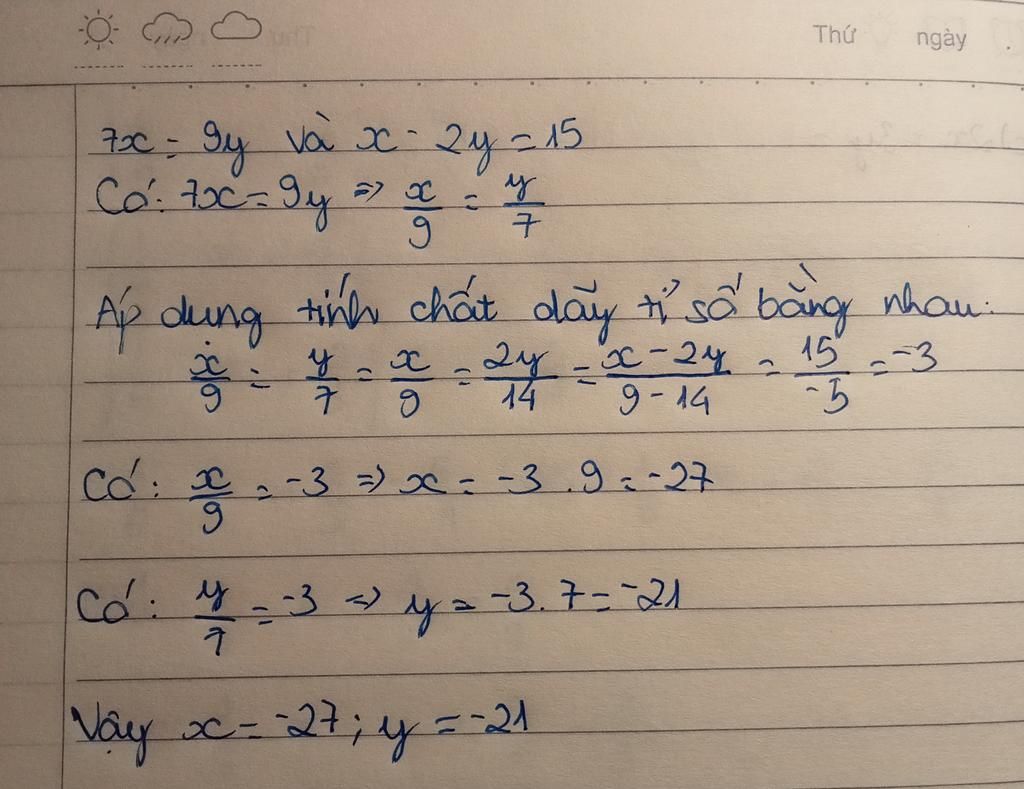 Thứ ngày .
7x = 9y và x - 2y = 15
Có: 7x = 9y => x/9 = y/7
Áp dung tính chất dãy tỉ số bằng nhau:
x/9 = y/7 = x/9 = 2y/14 = x - 2y/9 - 14 = 15/-5 = -3
Có: x/9 = -3 => x = -3 . 9 = -27
Có: y/7 = -3 => y = -3. 7 = -21
Vậy x = -27; y = -21